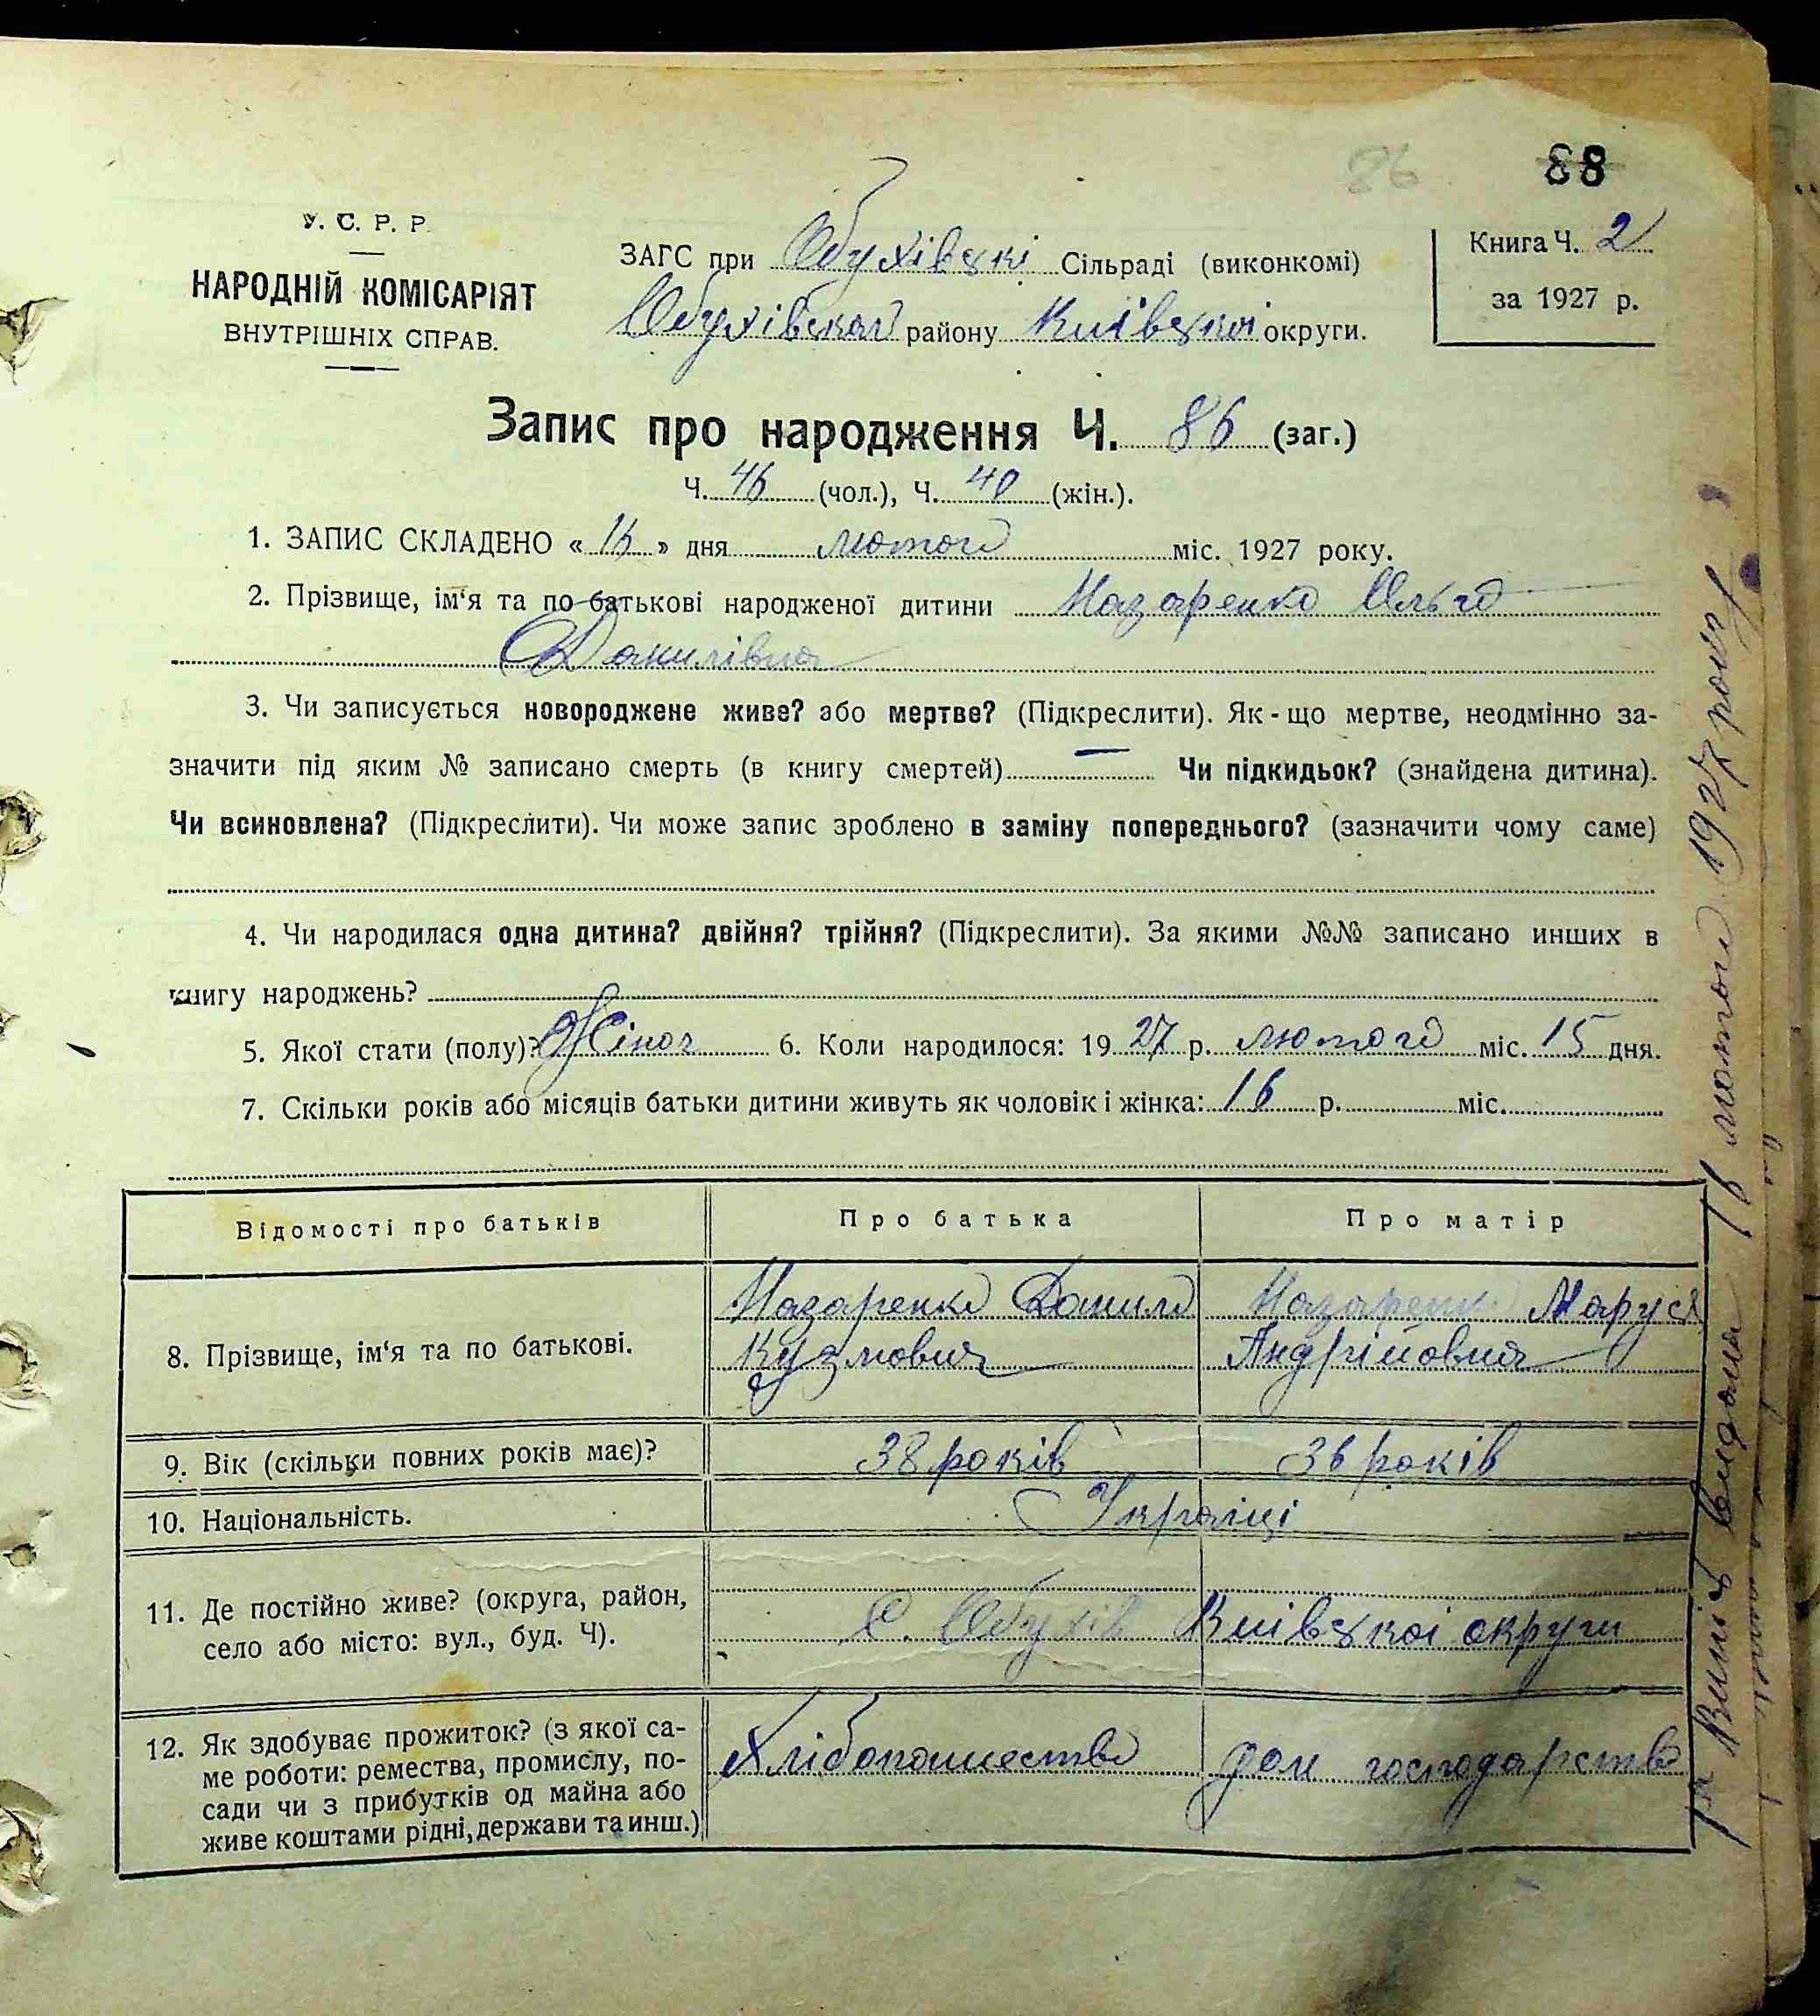 86 88
У. С. Р. Р.
НАРОДНІЙ КОМІСАРІЯТ
ВНУТРІШНІХ СПРАВ.
ЗАГС при Обухівскі Сільраді (виконкомі)
Обухівског району Київскої округи.
Книга Ч. 2
за 1927 р.
Запис про народження Ч. 86 (заг.)
Ч. 46 (чол.), Ч. 40 (жін.).
1. ЗАПИС СКЛАДЕНО « 16 » дня лютого міс. 1927 року.
2. Прізвище, ім'я та по-батькові народженої дитини Назаренко Ольга
Данилівна
3. Чи записується новороджене живе? або мертве? (Підкреслити). Як-що мертве, неодмінно за-
значити під яким № записано смерть (в книгу смертей) — Чи підкидьок? (знайдена дитина).
Чи всиновлена? (Підкреслити). Чи може запис зроблено в заміну попереднього? (зазначити чому саме)
4. Чи народилася одна дитина? двійня? трійня? (Підкреслити). За якими №№ записано инших в
книгу народжень?
5. Якої стати (полу)? Жіноч 6. Коли народилося: 1927 р. лютого міс. 15 дня.
7. Скільки років або місяців батьки дитини живуть як чоловік і жінка: 16 р. міс.
Відомості про батьків Про батька Про матір
8. Прізвище, ім'я та по батькові.
Назаренко Данило
Кузмович
Назаренко Маруся
Андрійовна
9. Вік (скільки повних років має)? 38 років 36 років
10. Національність. Українці
11. Де постійно живе? (округа, район,
село або місто: вул., буд. Ч).
С. Обухів Київскої округи
12. Як здобуває прожиток? (з якої са-
ме роботи: ремества, промислу, по-
сади чи з прибутків од майна або
живе коштами рідні, держави та инш.)
Хлібопашество дом господарство
Випис видана 16 лютого 1927 року